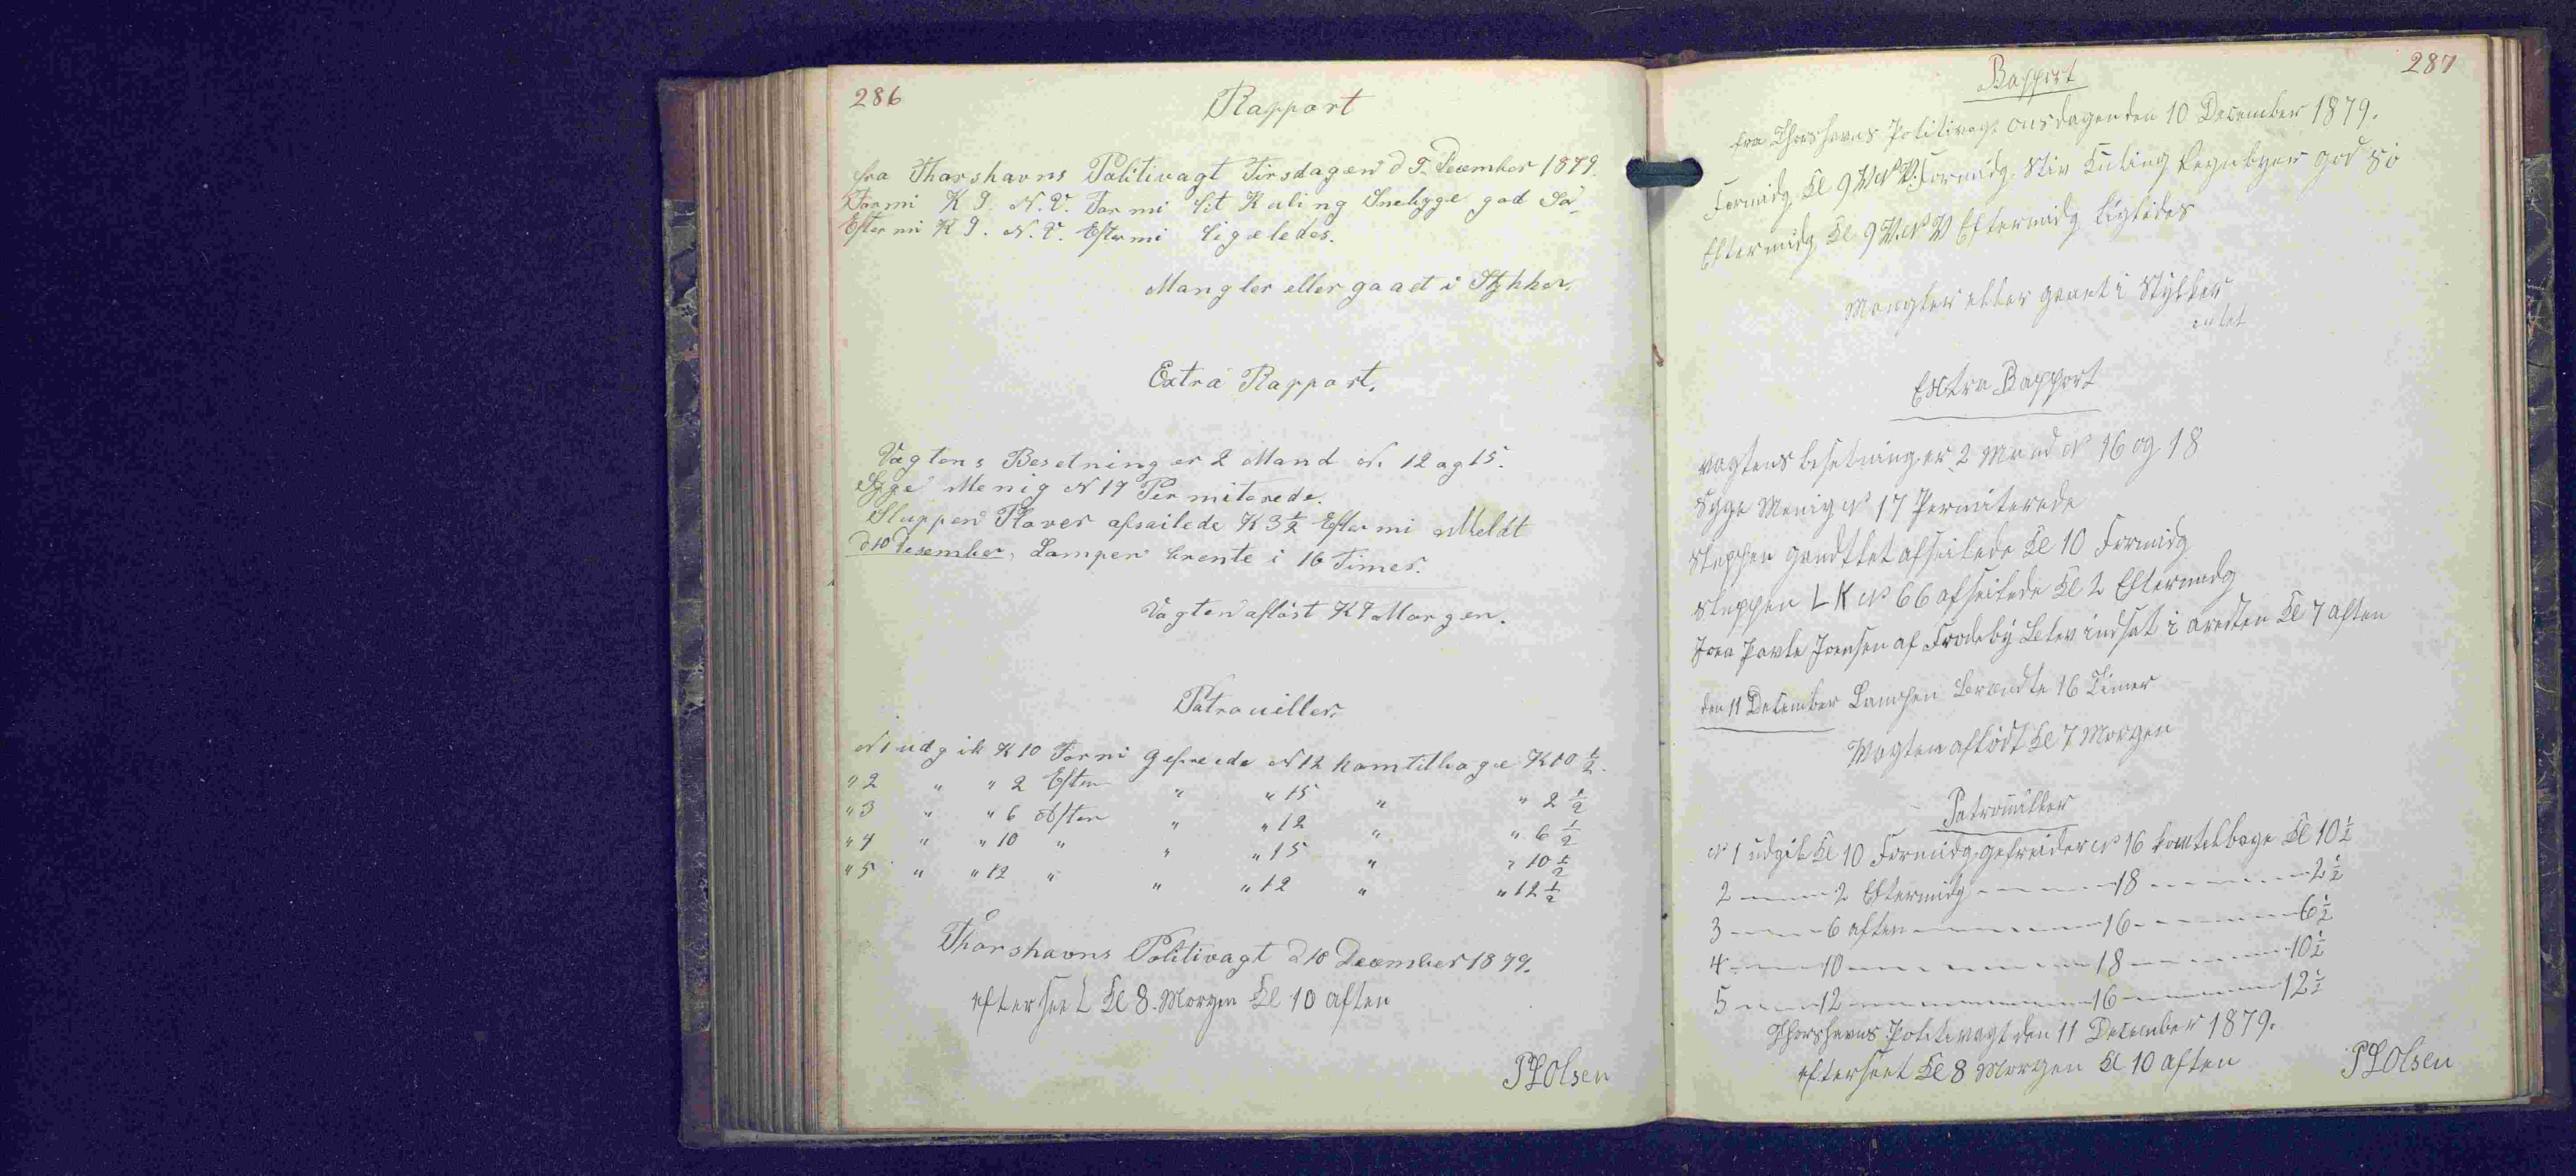 286
Rapport
fra Thorshavns Politivagt Tirsdagen d 9. December 1879.
Formi K 9. N.V. For mi lit Kuling Snebyge god Sö
Eftermi K 9. N.V. Eftermi ligeledes.
Mangler eller gaaet i Stykker.
Extra Rapport.
Vagtens Besetning er 2 Mand N. 12 og 15.
Syge Menig N 17 Permiterede.
Sluppen Plover afsailede K 3 1/2 Eftermi Meldt
d 10 Desember, Lampen brente i 16 Timer.
Vagten aflöst K 7 Morgen.
Patrouiller.
N 1 udgik K 10 Formi Gefreide N 12 kom tilbage K 10 1/2.
" 2 " " 2 Efterm " " 15 " " 2 1/2
" 3 " " 6 Aften " " 12 " " 6 1/2
" 4 " " 10 " " " 15 " " 10 1/2
" 5 " " 12 " " " 12 " " 12 1/2
Thorshavns Politivagt d 10 December 1879.
efterseet Kl 8. Morgen Kl 10 aften
PLOlsen
287
Rapport
fra Thorshavns Politivagt onsdagen den 10 December 1879.
Formidg Kl 9 V.N.V. Formidg Stiv Kuling Regnbyer god Sö
Eftermidg Kl 9 V.N.V Eftermidg ligledes
Mangler eller gaaet i Stykker
intet
Extra Rapport
vagtens besetning er 2 Mand N 16 og 18
Syge Menig N 17 Permiterede
Sluppen afseilede Kl 10 Formidg
Sluppen L K N 66 afseilede Kl 2 Eftermidg
Joen Povle Joensen af Frodeby blev indsat i aresten Kl 7 aften
den 11 December Lampen brændte 16 Timer
Vagten aflödt Kl 7 Morgen
Patrouiller
N 1 udgik Kl 10 Formidg gefreider N 16 komtelbage Kl 10 1/2
2 --- 2 Eftermidg --- 18 --- 2 1/2
3 --- 6 aften --- 16 --- 6 1/2
4 --- 10 --- 18 --- 10 1/2
5 --- 12 --- 16 --- 12 1/2
Thorshavns Politivagt den 11 December 1879.
efterseet Kl 8 Morgen Kl 10 aften
PLOlsen